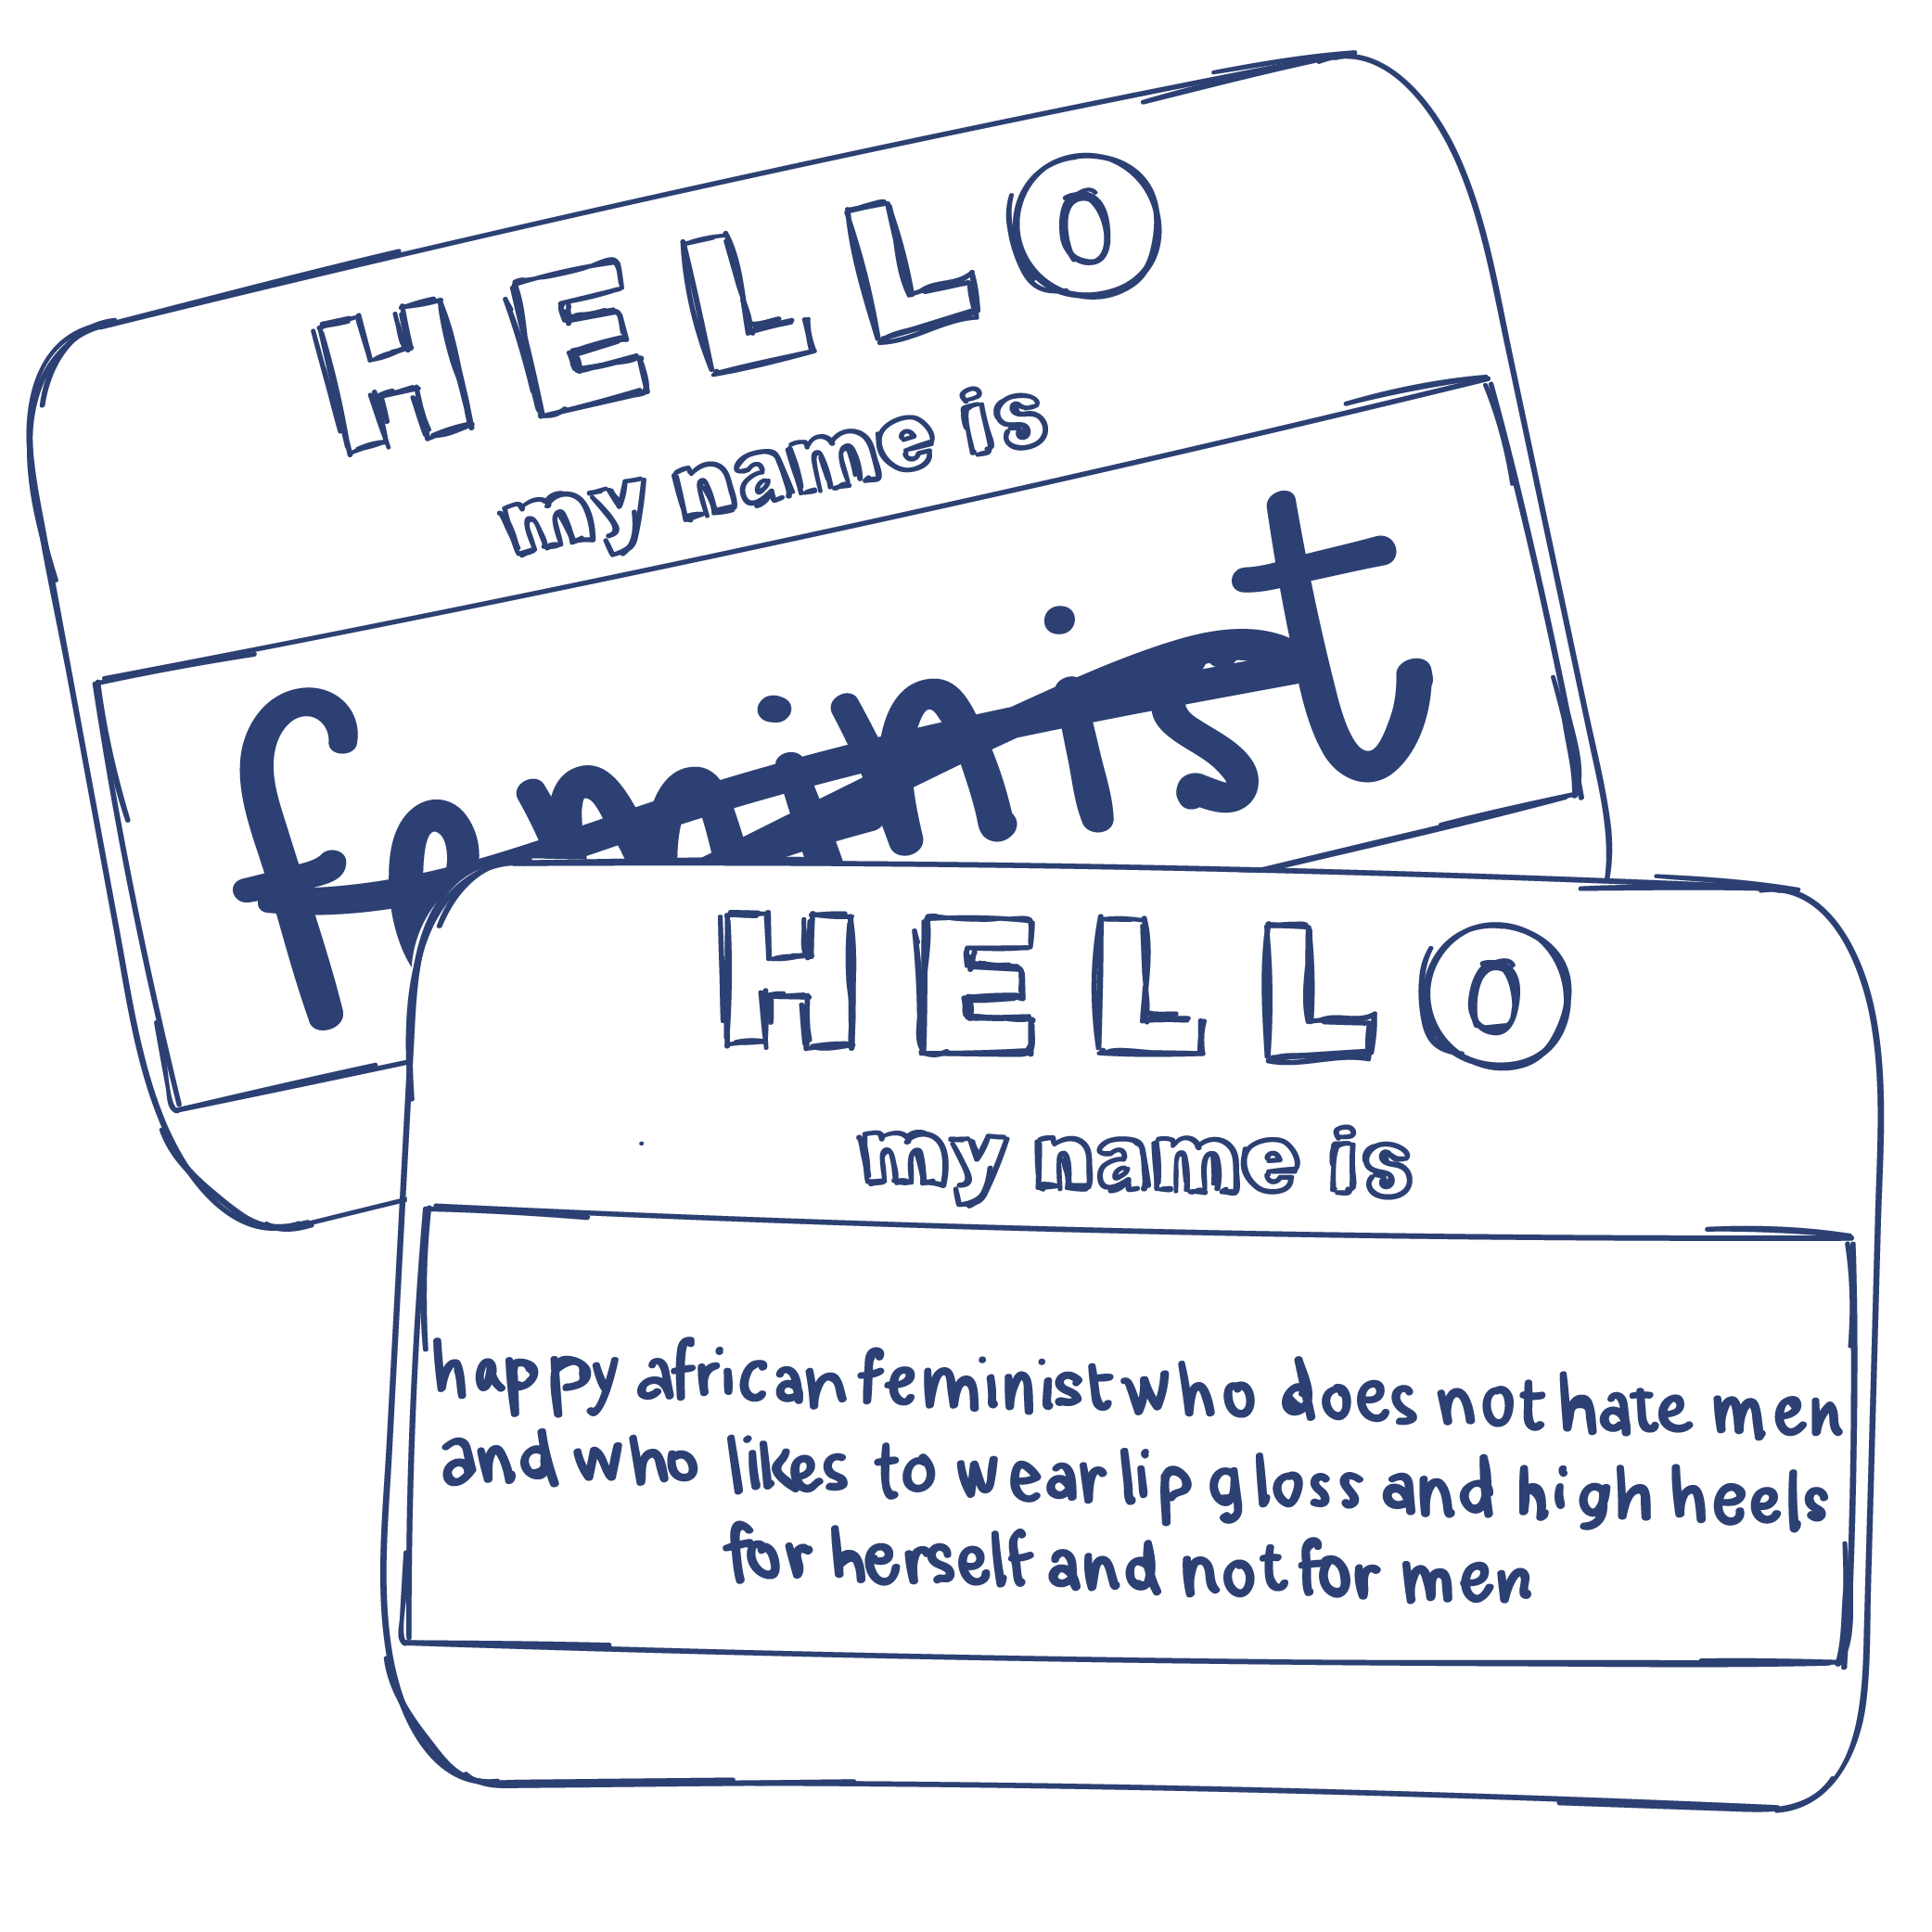 HELLO
my name is
feminist
HELLO
my name is
happy african feminist who does not hate men
and who likes to wear lip gloss and high heels
for herself and not for men